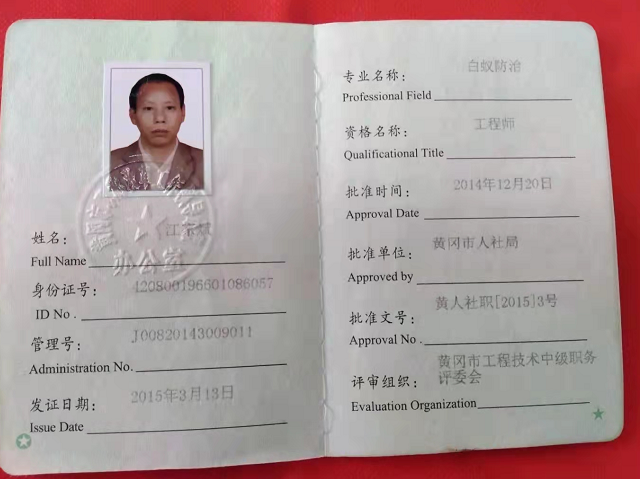 姓名：
Full Name
身份证号： 420800196601086057
ID No.
管理号： J00820143009011
Administration No.
发证日期： 2015年3月13日
Issue Date
办公室
专业名称： 白蚁防治
Professional Field
资格名称： 工程师
Qualificational Title
批准时间： 2014年12月20日
Approval Date
批准单位： 黄冈市人社局
Approved by
批准文号： 黄人社职[2015]3号
Approval No.
评审组织： 黄冈市工程技术中级职务
评委会
Evaluation Organization